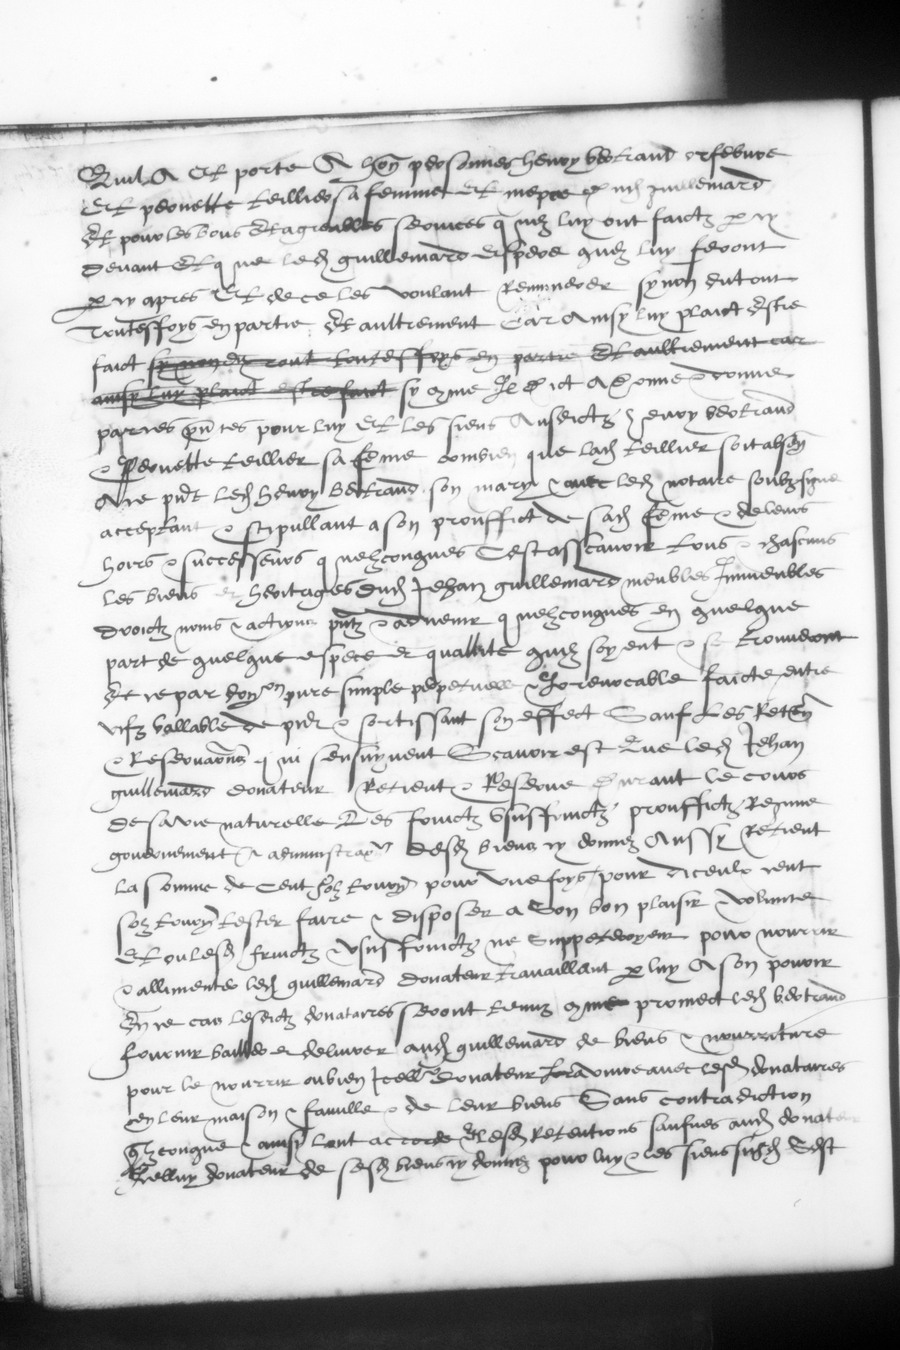 Quil A Et porte A hon personnes henry bertrand orfebvre
Et perrette teillier sa femme Et niepce dud guillemard
Et pour les bons Et agreables services q mes luy ont faictz p cy
devant Et q ne led guillemard espere quilz luy feront
p cy apres Et de ce les voulant Remunerer synon du tout
Touteffoys en partie Et aultrement Car Ainsy luy plaict Estre
faict synon du tout touteffoys en partie Et aultrement car
ainsy luy plaict estre faict sy come Il dict A donne & donne
par ces pntes pour luy Et les siens Ausdictz henry bertrand
& Perrette teillier sa feme combien que lad teillier soit absen
A ce pnt led henry bertrand son mary & avec led notaire soubzsigne
acceptant & stipullant a son prouffict de sad feme & de leurs
hoirs & successeurs q uelzconques Cest asscavoir tous & chascuns
les biens et heritages dud Jehan guillemard meubles Immeubles
droictz noms & actions pntz & advenir q uelzconques en quelque
part de quelque espece et quallite quilz soyent & se trouveront
Et ce par donon pure simple perpetuelle & Irrevocable faicte entre
vifz vallable de pnt & sortissant son effect Sauf Les Reten
& Reservaons q ui sensuyvent Scavoir est Que led Jehan
guillemard donateur Retient & Reserve Durant le cours
de sa vie naturelle Les fruictz Usuffruictz prouffictz Regime
gouvernement & administraon desd biens cy donnez Aussy Retient
la somme de Cent solz tourn pour une foys pour diceulx cent
solz tourn tester faire & disposer a Son bon plaisir & volunte
Et ou lesd fruictz & usuffruictz ne Suppeteroyent pour nourrir
& allimenter led guillemard donateur travaillant p luy A son pouvoir
En ce cas lesdictz donatairres seront tenuz come promect led bertrand
fournir bailler et delivrer aud guillemard de biens & nourriture
pour le nourrir ou bien Icelluy donateur Ira vivre avec lesd donataires
en leur maison & famille & de leur biens Sans contradiction
qlzconque & ainsy lont accorde Et lesd Retentions saufves aud donateur
Icelluy donateur de sesd biens cy donnez pour luy & les siens susd Sest